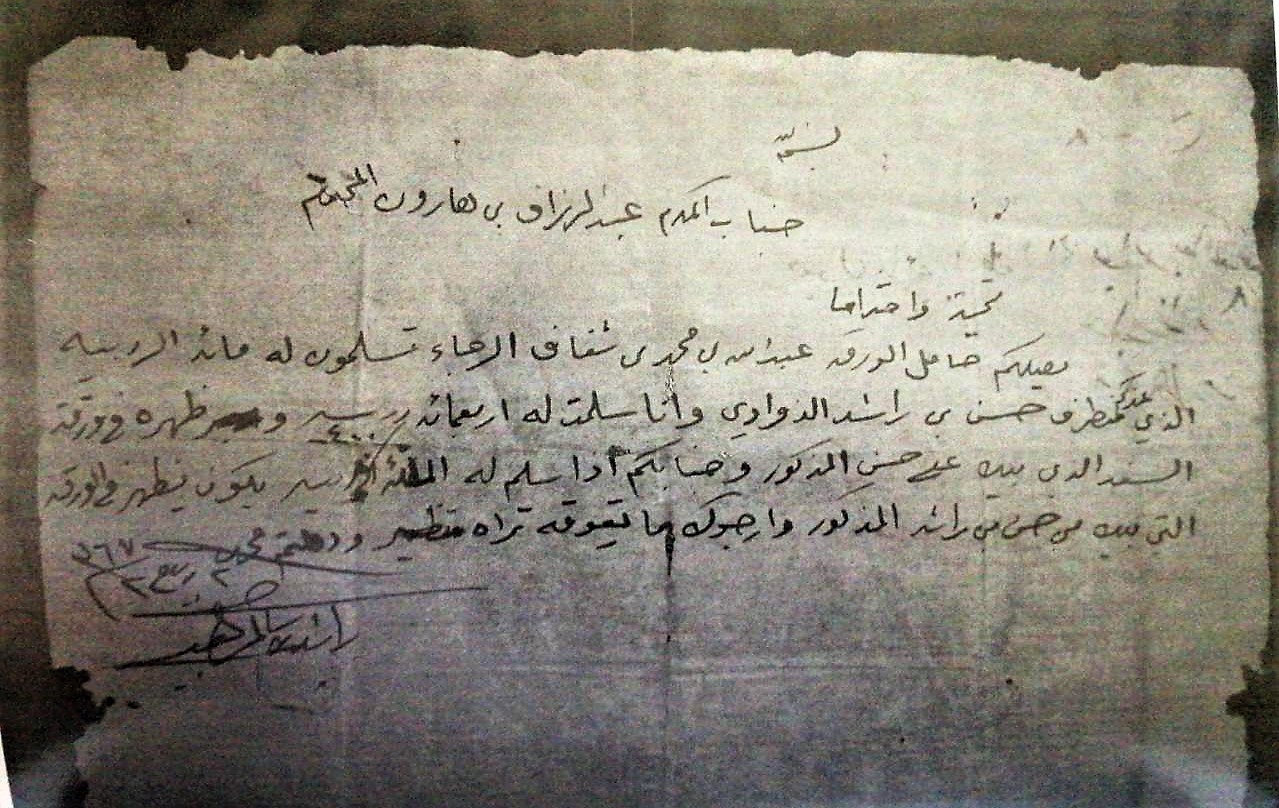 بسم الله
جناب المكرم عبدالرزاق بن هارون المحترم
تحية واحتراما
يصلكم حامل الورقه عبدالله بن محمد بن شفاف الرجاء تسلمون له مائة الربيه
الذي عندكم حسن بن راشد الذوادي وانا سلمت له اربعمائة ربيه ٤٠٠ ظهره في ورقة
السند الذي بيده على حسن المذكور وجنابكم اذا سلم له المائة ربيه يكون يظهر في الورقه
التي بيده من حسن بن راشد المذكور وارجوك ما تعوقه تراه ودمتم محروسين
٢ ربيع ٢ ٣٦٧
راشد بن